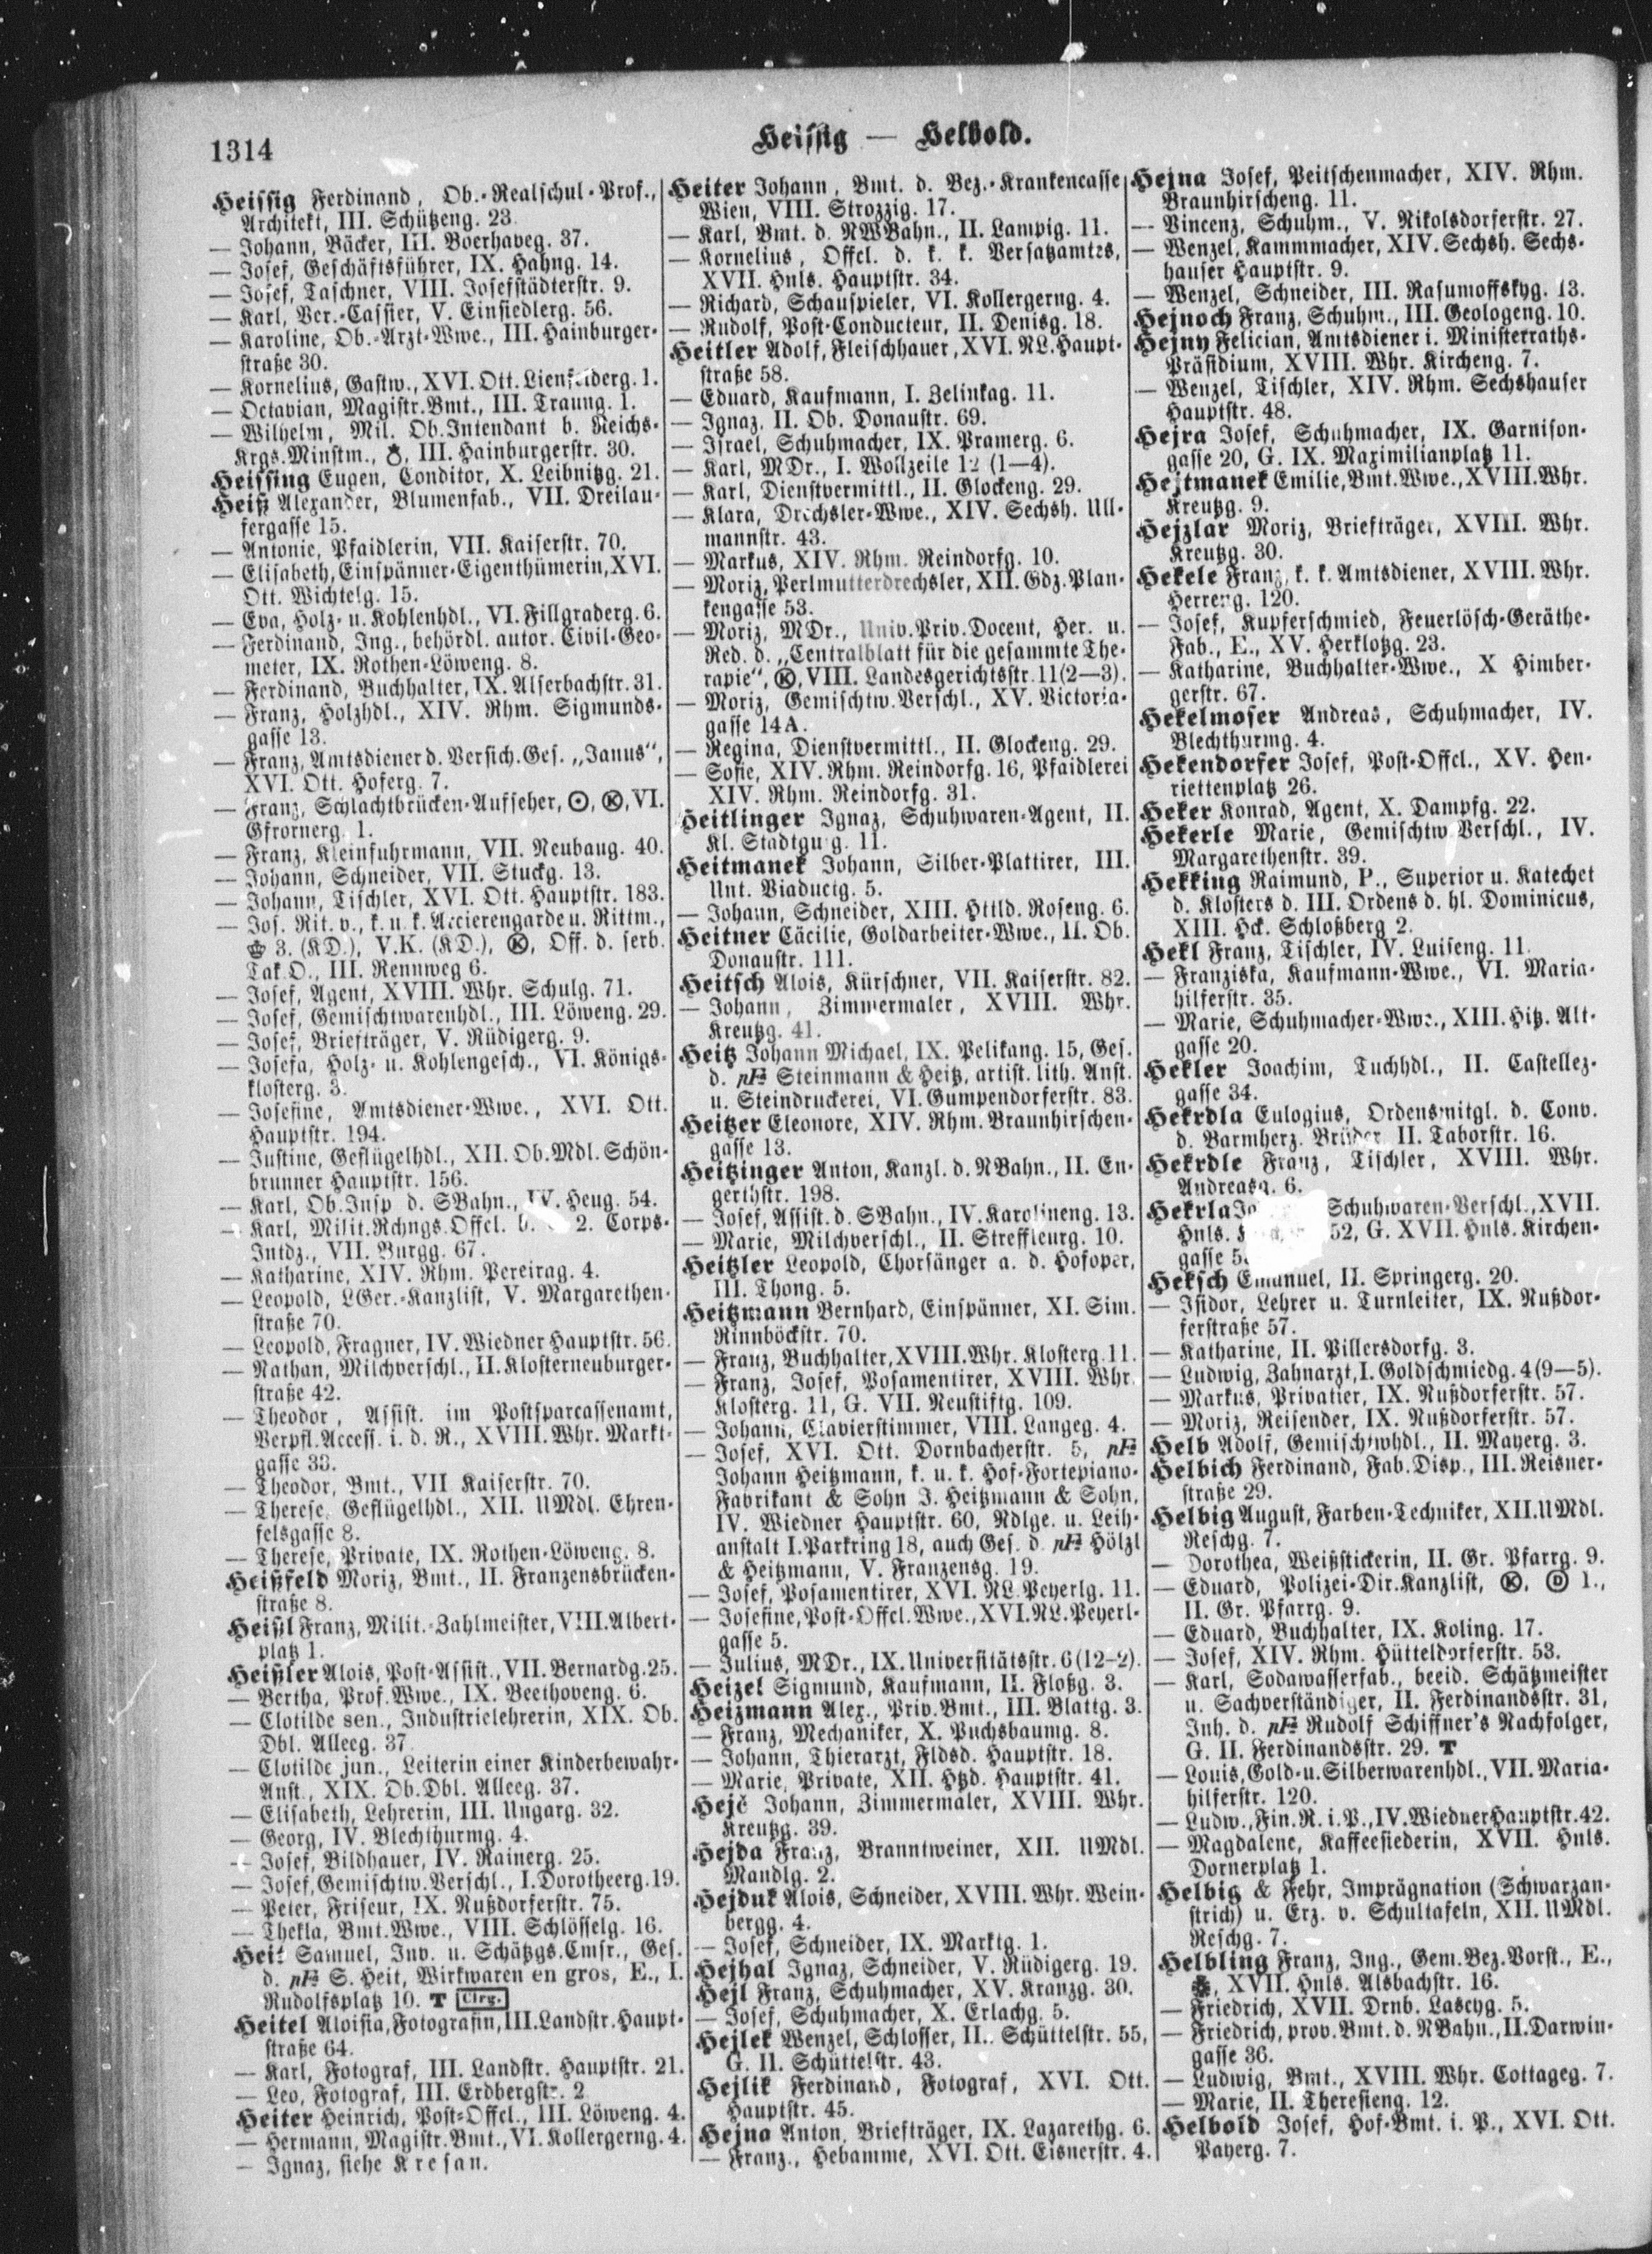 1314
Heissig — Helbold.
Heissig Ferdinand, Ob.-Realschul-Prof.,
Architekt, III. Schützeng. 23
— Johann, Bäcker, III. Boerhaveg. 37.
— Josef, Geschäftsführer, IX. Hahng. 14.
— Josef, Taschner, VIII. Josefstädterstr. 9.
— Karl, Ver.-Cassier, V. Einsiedlerg. 56.
— Karoline, Ob.-Arzt-Wwe., III. Hainburger-
straße 30.
— Kornelius, Gastw., XVI. Ott. Lienfelderg. 1.
— Octavian, Magistr.Bmt., III. Traung. 1.
— Wilhelm, Mil. Ob.Intendant b. Reichs-
Krgs.Minstm., III. Hainburgerstr. 30.
Heissing Eugen, Conditor, X. Leibnitzg. 21.
Heiß Alexander, Blumenfab., VII. Dreilau-
fergasse 15.
— Antonie, Pfaidlerin, VII. Kaiserstr. 70.
— Elisabeth, Einspänner-Eigenthümerin, XVI.
Ott. Wichtelg. 15.
— Eva, Holz- u. Kohlenhdl., VI. Fillgraderg. 6.
— Ferdinand, Ing., behördl. autor. Civil-Geo-
meter, IX. Rothen-Löweng. 8.
— Ferdinand, Buchhalter, IX. Alserbachstr. 31.
— Franz, Holzhdl., XIV. Rhm. Sigmunds-
gasse 13.
— Franz, Amtsdiener d. Versich.Ges. „Janus",
XVI. Ott. Hoferg. 7.
— Franz, Schlachtbrücken-Aufseher, ⊙, Ⓚ, VI.
Gfrornerg. 1.
— Franz, Kleinfuhrmann, VII. Neubaug. 40.
— Johann, Schneider, VII. Stuckg. 13.
— Johann, Tischler, XVI. Ott. Hauptstr. 183.
— Jos. Rit. v., k. u. k. Arcierengarde u. Rittm.,
3. (KD.), V.K. (KD.), Ⓚ, Off. d. serb.
Tak.O., III. Rennweg 6.
— Josef, Agent, XVIII. Whr. Schulg. 71.
— Josef, Gemischtwarenhdl., III. Löweng. 29.
— Josef, Briefträger, V. Rüdigerg. 9.
— Josefa, Holz- u. Kohlengesch., VI. Königs-
klosterg. 3.
— Josefine, Amtsdiener-Wwe., XVI. Ott.
Hauptstr. 194.
— Justine, Geflügelhdl., XII. Ob.Mdl. Schön-
brunner Hauptstr. 156.
— Karl, Ob.Insp d. SBahn., IV. Heug. 54.
— Karl, Milit.Rchngs.Offcl. 2. Corps-
Intdz., VII. Burgg. 67.
— Katharine, XIV. Rhm. Pereirag. 4.
— Leopold, LGer.-Kanzlist, V. Margarethen-
straße 70.
— Leopold, Fragner, IV. Wiedner Hauptstr. 56.
— Nathan, Milchverschl., II. Klosterneuburger-
straße 42.
— Theodor, Assist. im Postsparcassenamt,
Verpfl.Access. i. d. R., XVIII. Whr. Markt-
gasse 33.
— Theodor, Bmt., VII Kaiserstr. 70.
— Therese, Geflügelhdl., XII. UMdl. Ehren-
felsgasse 8.
— Therese, Private, IX. Rothen-Löweng. 8.
Heißfeld Moriz, Bmt., II. Franzensbrücken-
straße 8.
Heißl Franz, Milit.-Zahlmeister, VIII. Albert-
platz 1.
Heißler Alois, Post-Assist., VII. Bernardg. 25.
— Bertha, Prof.Wwe., IX. Beethoveng. 6.
— Clotilde sen., Industrielehrerin, XIX. Ob.
Dbl. Alleeg. 37
— Clotilde jun., Leiterin einer Kinderbewahr-
Anst., XIX. Ob.Dbl. Alleeg. 37.
— Elisabeth, Lehrerin, III. Ungarg. 32.
— Georg, IV. Blechthurmg. 4.
— Josef, Bildhauer, IV. Rainerg. 25.
— Josef, Gemischtw.Verschl., I. Dorotheerg. 19.
— Peter, Friseur, IX. Nußdorferstr. 75.
— Thekla, Bmt.Wwe., VIII. Schlösselg. 16.
Heit Samuel, Inv. u. Schätzgs.Cmsr., Ges.
d. pF: S. Heit, Wirkwaren en gros, E., I.
Rudolfsplatz 10. T Clrg.
Heitel Aloisia, Fotografin, III. Landstr. Haupt-
straße 64.
— Karl, Fotograf, III. Landstr. Hauptstr. 21.
— Leo, Fotograf, III. Erdbergstr. 2
Heiter Heinrich, Post-Offcl., III. Löweng. 4.
— Hermann, Magistr.Bmt., VI. Kollergerng. 4.
— Ignaz, siehe Kresan.
Heiter Johann, Bmt. d. Bez.-Krankencasse
Wien, VIII. Strozzig. 17.
— Karl, Bmt. d. NWBahn., II. Lampig. 11.
— Kornelius, Offcl. d. k. k. Versatzamtes,
XVII. Hnls. Hauptstr. 34.
— Richard, Schauspieler, VI. Kollergerng. 4.
— Rudolf, Post-Conducteur, II. Denisg. 18.
Heitler Adolf, Fleischhauer, XVI. NL. Haupt-
straße 58.
— Eduard, Kaufmann, I. Zelinkag. 11.
— Ignaz, II. Ob. Donaustr. 69.
— Israel, Schuhmacher, IX. Pramerg. 6.
— Karl, MDr., I. Wollzeile 12 (1—4).
— Karl, Dienstvermittl., II. Glockeng. 29.
— Klara, Drechsler-Wwe., XIV. Sechsh. Ull-
mannstr. 43.
— Markus, XIV. Rhm. Reindorfg. 10.
— Moriz, Perlmutterdrechsler, XII. Gdz. Plan-
kengasse 53.
— Moriz, MDr., Univ.Priv.Docent, Her. u.
Red. d. „Centralblatt für die gesammte The-
rapie", Ⓚ, VIII. Landesgerichtsstr. 11 (2—3).
— Moriz, Gemischtw.Verschl., XV. Victoria-
gasse 14A.
— Regina, Dienstvermittl., II. Glockeng. 29.
— Sofie, XIV. Rhm. Reindorfg. 16, Pfaidlerei
XIV. Rhm. Reindorfg. 31.
Heitlinger Ignaz, Schuhwaren-Agent, II.
Kl. Stadtgutg. 11.
Heitmanek Johann, Silber-Plattirer, III.
Unt. Viaductg. 5.
— Johann, Schneider, XIII. Httld. Roseng. 6.
Heitner Cäcilie, Goldarbeiter-Wwe., II. Ob.
Donaustr. 111.
Heitsch Alois, Kürschner, VII. Kaiserstr. 82.
— Johann, Zimmermaler, XVIII. Whr.
Kreutzg. 41.
Heitz Johann Michael, IX. Pelikang. 15, Ges.
d. pF: Steinmann & Heitz, artist. lith. Anst.
u. Steindruckerei, VI. Gumpendorferstr. 83.
Heitzer Eleonore, XIV. Rhm. Braunhirschen-
gasse 13.
Heitzinger Anton, Kanzl. d. NBahn., II. En-
gerthstr. 198.
— Josef, Assist. d. SBahn., IV. Karolineng. 13.
— Marie, Milchverschl., II. Streffleurg. 10.
Heitzler Leopold, Chorsänger a. d. Hofoper,
III. Thong. 5.
Heitzmann Bernhard, Einspänner, XI. Sim.
Rinnböckstr. 70.
— Franz, Buchhalter, XVIII. Whr. Klosterg. 11.
— Franz, Josef, Posamentirer, XVIII. Whr.
Klosterg. 11, G. VII. Neustiftg. 109.
— Johann, Clavierstimmer, VIII. Langeg. 4.
— Josef, XVI. Ott. Dornbacherstr. 5, pF:
Johann Heitzmann, k. u. k. Hof-Fortepiano-
Fabrikant & Sohn J. Heitzmann & Sohn,
IV. Wiedner Hauptstr. 60, Ndlge. u. Leih-
anstalt I. Parkring 18, auch Ges. d. pF: Hölzl
& Heitzmann, V. Franzensg. 19.
— Josef, Posamentirer, XVI. NL. Peyerlg. 11.
— Josefine, Post-Offcl.Wwe., XVI. NL. Peyerl-
gasse 5.
— Julius, MDr., IX. Universitätsstr. 6 (12–2).
Heizel Sigmund, Kaufmann, II. Floßg. 3.
Heizmann Alex., Priv.Bmt., III. Blattg. 3.
— Franz, Mechaniker, X. Puchsbaumg. 8.
— Johann, Thierarzt, Fldsd. Hauptstr. 18.
— Marie, Private, XII. Htzd. Hauptstr. 41.
Hejč Johann, Zimmermaler, XVIII. Whr.
Kreutzg. 39.
Hejda Franz, Branntweiner, XII. UMdl.
Mandlg. 2.
Hejduk Alois, Schneider, XVIII. Whr. Wein-
bergg. 4.
— Josef, Schneider, IX. Marktg. 1.
Hejhal Ignaz, Schneider, V. Rüdigerg. 19.
Hejl Franz, Schuhmacher, XV. Kranzg. 30.
— Josef, Schuhmacher, X. Erlachg. 5.
Hejlek Wenzel, Schlosser, II. Schüttelstr. 55,
G. II. Schüttelstr. 43.
Hejlik Ferdinand, Fotograf, XVI. Ott.
Hauptstr. 45.
Hejna Anton, Briefträger, IX. Lazarethg. 6.
— Franz., Hebamme, XVI. Ott. Eisnerstr. 4.
Hejna Josef, Peitschenmacher, XIV. Rhm.
Braunhirscheng. 11.
— Vincenz, Schuhm., V. Nikolsdorferstr. 27.
— Wenzel, Kammmacher, XIV. Sechsh. Sechs-
hauser Hauptstr. 9.
— Wenzel, Schneider, III. Rasumoffskyg. 13.
Hejnoch Franz, Schuhm., III. Geologeng. 10.
Hejny Felician, Amtsdiener i. Ministerraths-
Präsidium, XVIII. Whr. Kircheng. 7.
— Wenzel, Tischler, XIV. Rhm. Sechshauser
Hauptstr. 48.
Hejra Josef, Schuhmacher, IX. Garnison-
gasse 20, G. IX. Maximilianplatz 11.
Hejtmanek Emilie, Bmt.Wwe., XVIII. Whr.
Kreutzg. 9.
Hejzlar Moriz, Briefträger, XVIII. Whr.
Kreutzg. 30.
Hekele Franz, k. k. Amtsdiener, XVIII. Whr.
Herreng. 120.
— Josef, Kupferschmied, Feuerlösch-Geräthe-
Fab., E., XV. Herklotzg. 23.
— Katharine, Buchhalter-Wwe., X Himber-
gerstr. 67.
Hekelmoser Andreas, Schuhmacher, IV.
Blechthurmg. 4.
Hekendorfer Josef, Post-Offcl., XV. Hen-
riettenplatz 26.
Heker Konrad, Agent, X. Dampfg. 22.
Hekerle Marie, Gemischtw Verschl., IV.
Margarethenstr. 39.
Hekking Raimund, P., Superior u. Katechet
d. Klosters d. III. Ordens d. hl. Dominicus,
XIII. Hck. Schloßberg 2.
Hekl Franz, Tischler, IV. Luiseng. 11.
— Franziska, Kaufmann-Wwe., VI. Maria-
hilferstr. 35.
— Marie, Schuhmacher-Wwe., XIII. Hitz. Alt-
gasse 20.
Hekler Joachim, Tuchhdl., II. Castellez-
gasse 34.
Hekrdla Eulogius, Ordensmitgl. d. Conv.
d. Barmherz. Brüder, II. Taborstr. 16.
Hekrdle Franz, Tischler, XVIII. Whr.
Andreasg. 6.
Hekrla Schuhwaren-Verschl., XVII.
Hnls. 52, G. XVII. Hnls. Kirchen-
gasse
Heksch Emanuel, II. Springerg. 20.
— Isidor, Lehrer u. Turnleiter, IX. Nußdor-
ferstraße 57.
— Katharine, II. Pillersdorfg. 3.
— Ludwig, Zahnarzt, I. Goldschmiedg. 4 (9—5).
— Markus, Privatier, IX. Nußdorferstr. 57.
— Moriz, Reisender, IX. Nußdorferstr. 57.
Helb Adolf, Gemischtwhdl., II. Mayerg. 3.
Helbich Ferdinand, Fab.Disp., III. Reisner-
straße 29.
Helbig August, Farben-Techniker, XII. UMdl.
Reschg. 7.
— Dorothea, Weißstickerin, II. Gr. Pfarrg. 9.
— Eduard, Polizei-Dir.Kanzlist, Ⓚ, Ⓓ 1.,
II. Gr. Pfarrg. 9.
— Eduard, Buchhalter, IX. Koling. 17.
— Josef, XIV. Rhm. Hütteldorferstr. 53.
— Karl, Sodawasserfab., beeid. Schätzmeister
u. Sachverständiger, II. Ferdinandsstr. 31,
Inh. d. pF: Rudolf Schiffner's Nachfolger,
G. II. Ferdinandsstr. 29. T
— Louis, Gold- u. Silberwarenhdl., VII. Maria-
hilferstr. 120.
— Ludw., Fin.R. i. P., IV. Wiedner Hauptstr. 42.
— Magdalene, Kaffeesiederin, XVII. Hnls.
Dornerplatz 1.
Helbig & Fehr, Imprägnation (Schwarzan-
strich) u. Erz. v. Schultafeln, XII. UMdl.
Reschg. 7.
Helbling Franz, Ing., Gem.Bez.Vorst., E.,
XVII. Hnls. Alsbachstr. 16.
— Friedrich, XVII. Drnb. Lascyg. 5.
— Friedrich, prov. Bmt. d. NBahn., II. Darwin-
gasse 36.
— Ludwig, Bmt., XVIII. Whr. Cottageg. 7.
— Marie, II. Theresieng. 12.
Helbold Josef, Hof-Bmt. i. P., XVI. Ott.
Payerg. 7.